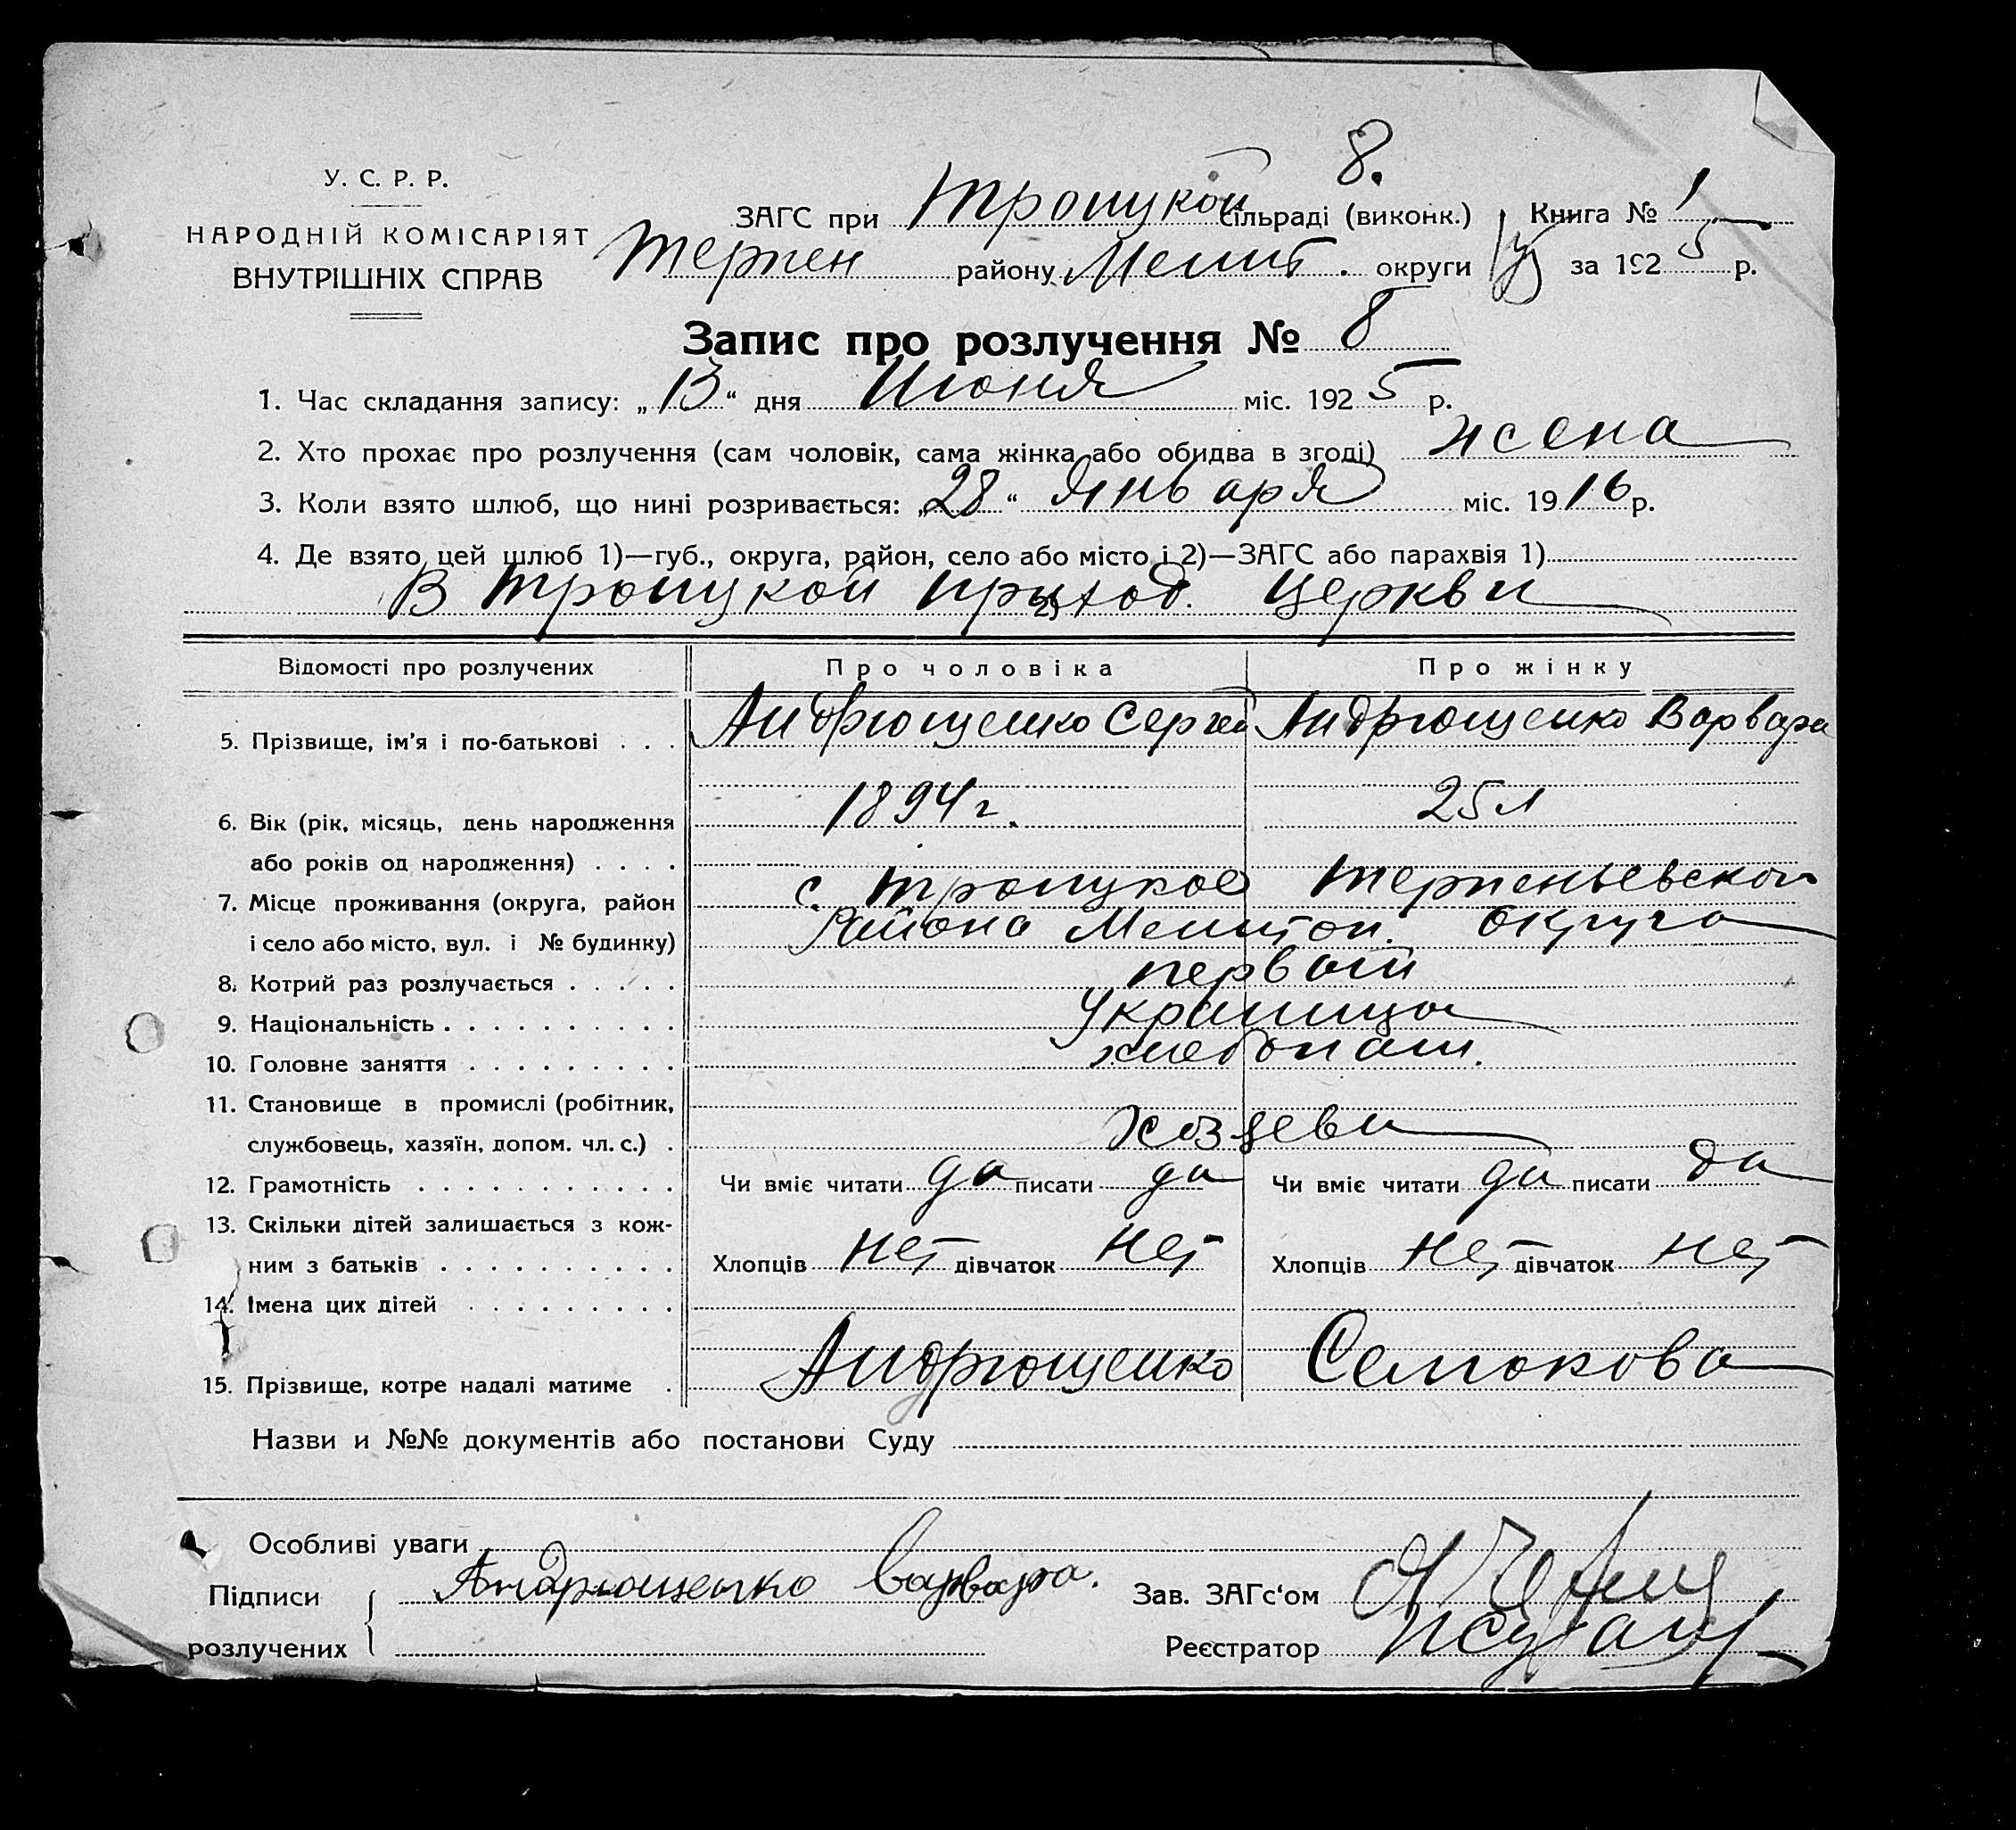 8.
У. С. Р. Р.
НАРОДНІЙ КОМІСАРІЯТ
ВНУТРІШНІХ СПРАВ
ЗАГС при Троицкой сільраді (виконк.) Книга № 1
Терпен району Мелит. округи за 1925 р.
Запис про розлучення № 8
1. Час складання запису: „13“ дня Июня міс. 1925 р.
2. Хто прохає про розлучення (сам чоловік, сама жінка або обидва в згоді) жена
3. Коли взято шлюб, що нині розривається: „28“ Января міс. 1916 р.
4. Де взято цей шлюб 1)—губ., округа, район, село або місто і 2)—ЗАГС або парахвія 1)
В Троицкой приход. Церкви
2)
Відомості про розлучених Про чоловіка Про жінку
5. Прізвище, ім'я і по-батькові . . . Андрющенко Сергей Андрющенко Варвара
6. Вік (рік, місяць, день народження 1894 г. 25 л
або років од народження) . . . .
7. Місце проживання (округа, район с. Троицкое Терпеньевского
і село або місто, вул. і № будинку) Района Мелитоп. Округа
8. Котрий раз розлучається . . . . . первый
9. Національність . . . . . . . . . . Украинцы
10. Головне заняття . . . . . . . . . хлебопаш.
11. Становище в промислі (робітник,
службовець, хазяїн, допом. чл. с.) . Хозяева
12. Грамотність . . . . . . . . . . . Чи вміє читати да писати да Чи вміє читати да писати да
13. Скільки дітей залишається з кож-
ним з батьків . . . . . . . . . . Хлопців нет дівчаток нет Хлопців нет дівчаток нет
14. Імена цих дітей . . . . . . . . .
15. Прізвище, котре надалі матиме . Андрющенко Семокова
Назви и №№ документів або постанови Суду
Особливі уваги
Підписи Андрющенко Варвара. Зав. ЗАГс‘ом
розлучених Реєстратор